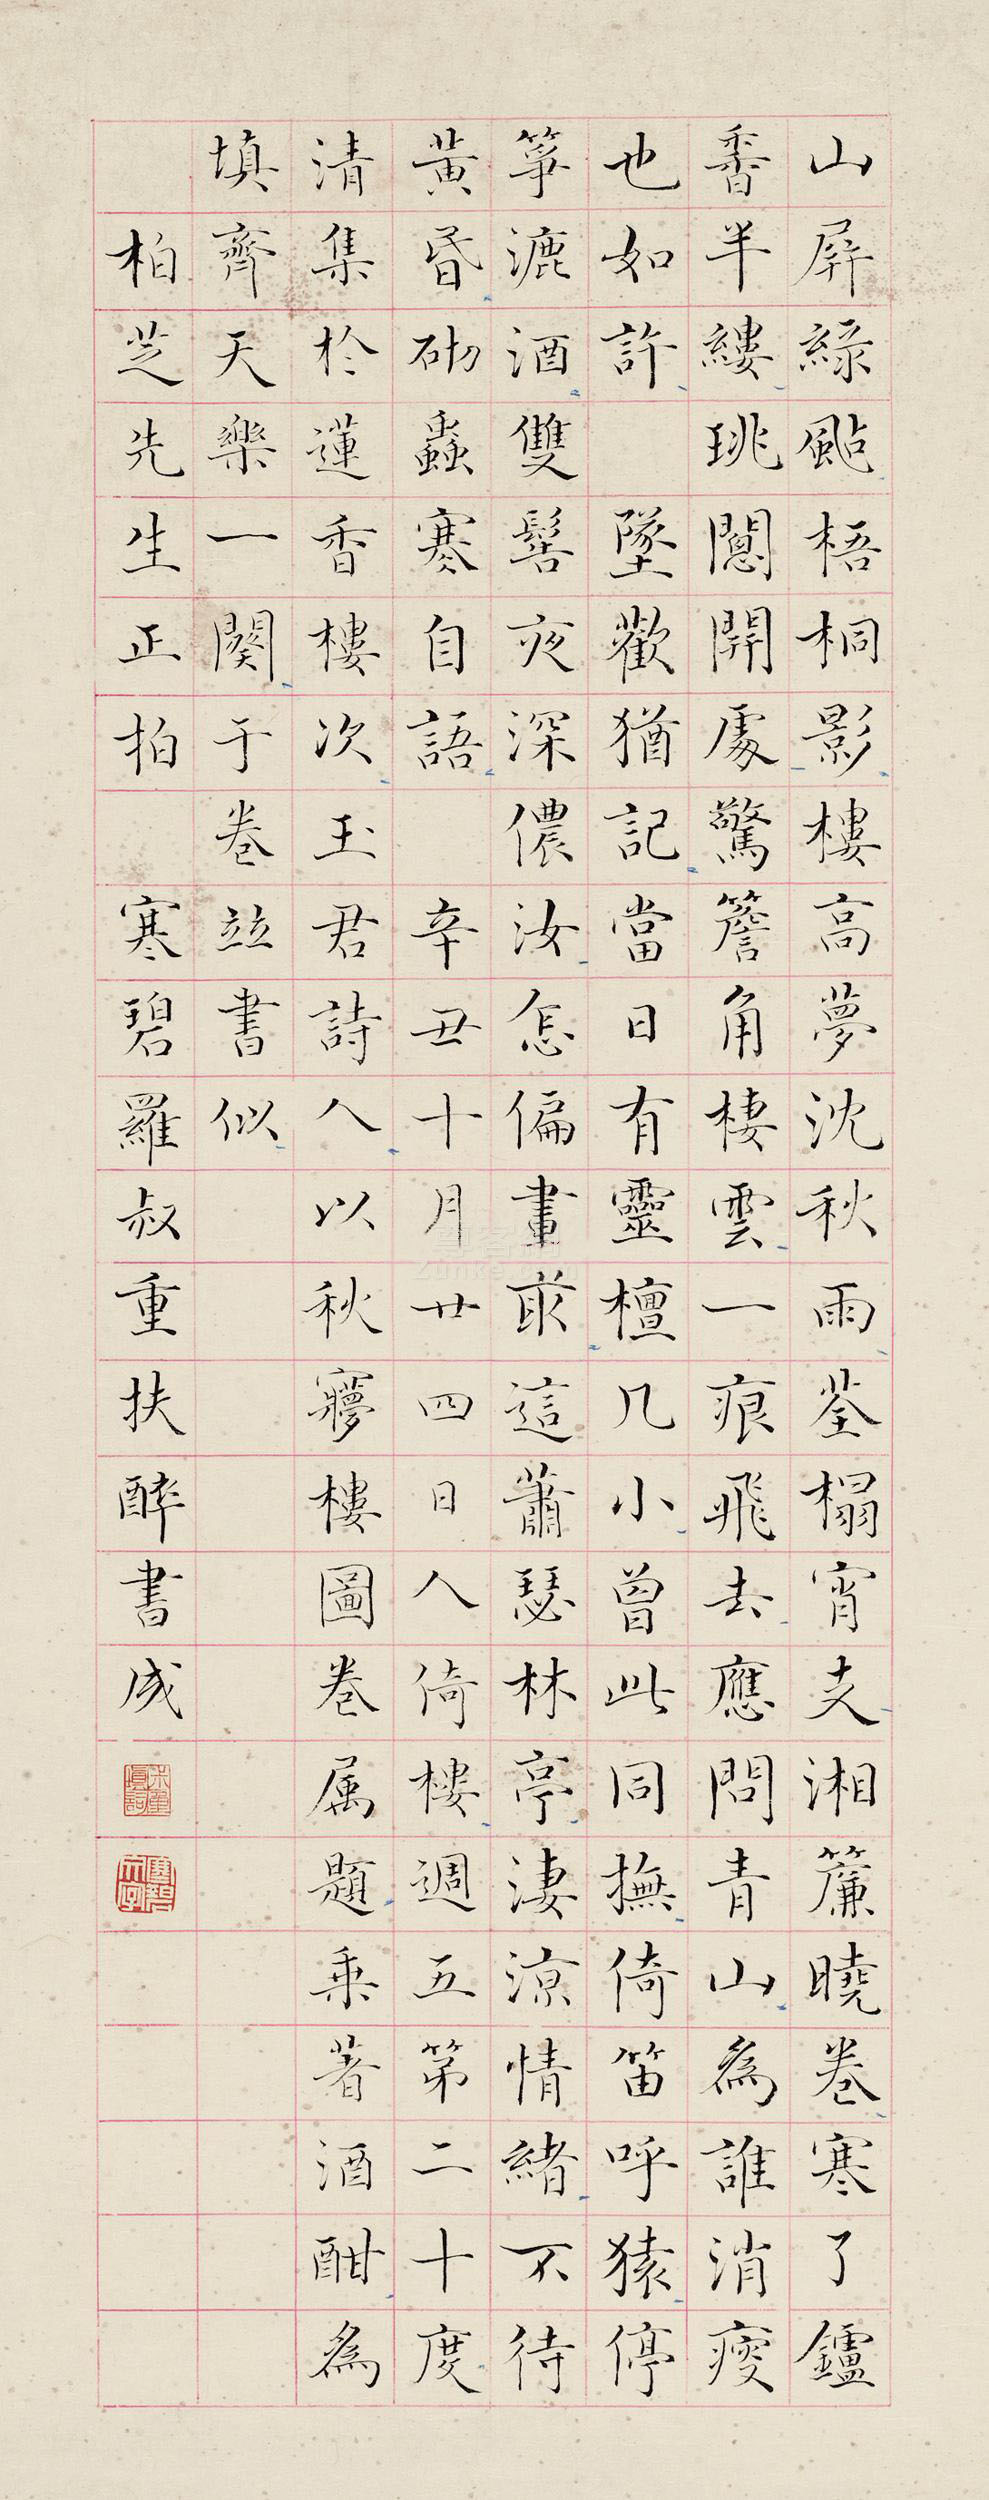 山屏綠颭梧桐影樓高夢沈秋雨荃榻宵支湘簾曉卷寒了鑪
香半縷珧闥開處驚簷角棲雲一痕飛去應問青山為誰消瘦
也如許 墜歡猶記當日有靈檀几小曾此同撫倚笛呼猿停
箏漉酒雙髻夜深儂汝怎偏畫最這蕭瑟林亭淒涼情緒不待
黃昏砌蟲寒自語 辛丑十月廿四日人倚樓週五第二十度
清集於蓮香樓次玉君詩人以秋寱樓圖卷属題乘著酒酣為
填齊天樂一闋于卷竝書似
柏芝先生正拍 寒碧羅叔重扶醉書成